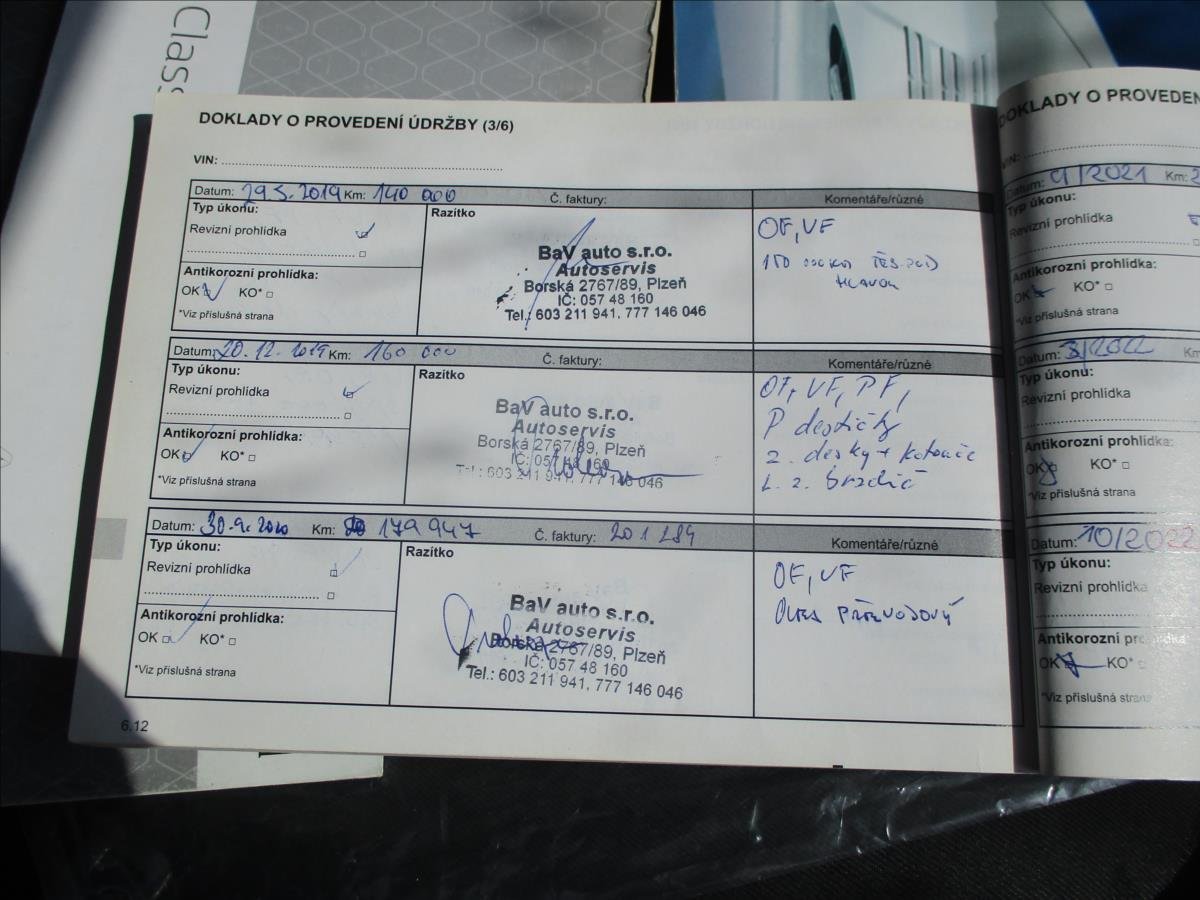 Clas
DOKLADY O PROVEDENÍ ÚDRŽBY (3/6)
VIN:
Datum: 29.5.2019 Km: 140 000 Č. faktury: Komentáře/různé
Typ úkonu:
Revizní prohlídka
Antikorozní prohlídka:
OK KO*
*Viz příslušná strana
Razítko
BaV auto s.r.o.
Autoservis
Borská 2767/89, Plzeň
IČ: 057 48 160
Tel.: 603 211 941, 777 146 046
OF, VF
HLAVOU
Datum: 20.12.2019 Km: 160 000 Č. faktury: Komentáře/různé
Typ úkonu:
Revizní prohlídka
Antikorozní prohlídka:
OK KO*
*Viz příslušná strana
Razítko
BaV auto s.r.o.
Autoservis
Borská 2767/89, Plzeň
IČ: 057 48 160
Tel.: 603 211 941, 777 146 046
OF, VF, PF,
P destičky
z. desky + kotouče
L. z. brzdič
Datum: 30.9.2020 Km: 179 947 Č. faktury: 201284 Komentáře/různé
Typ úkonu:
Revizní prohlídka
Antikorozní prohlídka:
OK KO*
*Viz příslušná strana
Razítko
BaV auto s.r.o.
Autoservis
Borská 2767/89, Plzeň
IČ: 057 48 160
Tel.: 603 211 941, 777 146 046
OF, VF
OLEJ PŘEVODOVÝ
6.12
DOKLADY O PROVEDEN
VIN:
Datum: 9/2021 Km: 2
Typ úkonu:
Revizní prohlídka
Antikorozní prohlídka:
OK KO*
*Viz příslušná strana
Datum: 3/2022 Km
Typ úkonu:
Revizní prohlídka
Antikorozní prohlídka:
OK KO*
*Viz příslušná strana
Datum: 10/2022
Typ úkonu:
Revizní prohlídka
Antikorozní prohlídka:
OK KO*
*Viz příslušná strana